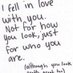 I fell in love
with you.
Not for how
you look, just
for who you
are.
(although you look